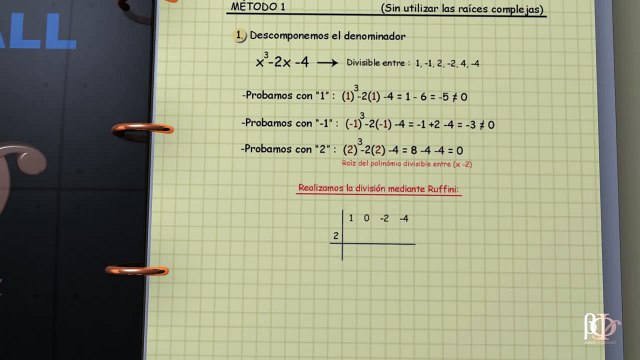 ALL
MÉTODO 1 (Sin utilizar las raíces complejas)
1. Descomponemos el denominador
x³-2x-4 → Divisible entre : 1, -1, 2, -2, 4, -4
-Probamos con "1" : (1)³-2(1) -4 = 1 - 6 = -5 ≠ 0
-Probamos con "-1" : (-1)³-2(-1) -4 = -1 +2 -4 = -3 ≠ 0
-Probamos con "2" : (2)³-2(2) -4 = 8 -4 -4 = 0
Raíz del polinómio divisible entre (x -2)
Realizamos la división mediante Ruffini:
1 0 -2 -4
2